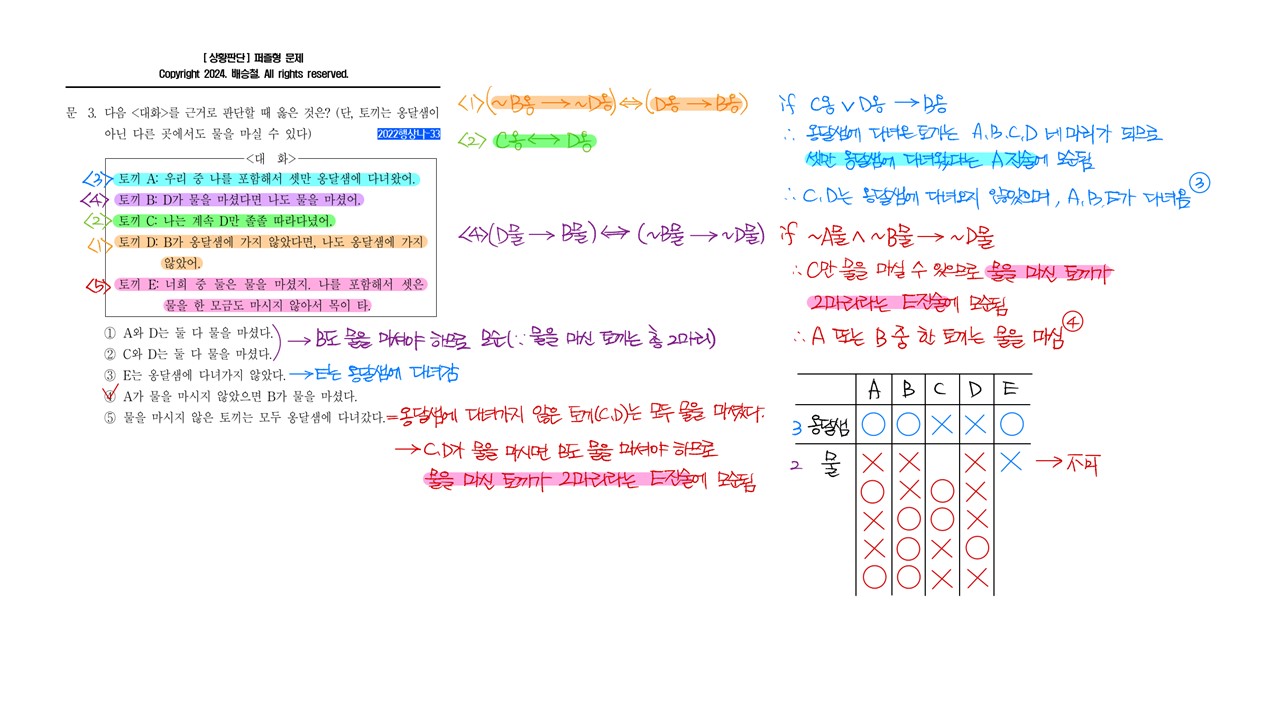 [상황판단] 퍼즐형 문제
Copyright 2024. 배승철. All rights reserved.
문 3. 다음 <대화>를 근거로 판단할 때 옳은 것은? (단, 토끼는 옹달샘이
아닌 다른 곳에서도 물을 마실 수 있다) 2022행상나-33
<대 화>
<3> 토끼 A: 우리 중 나를 포함해서 셋만 옹달샘에 다녀왔어.
<4> 토끼 B: D가 물을 마셨다면 나도 물을 마셨어.
<2> 토끼 C: 나는 계속 D만 졸졸 따라다녔어.
<1> 토끼 D: B가 옹달샘에 가지 않았다면, 나도 옹달샘에 가지
않았어.
<5> 토끼 E: 너희 중 둘은 물을 마셨지. 나를 포함해서 셋은
물을 한 모금도 마시지 않아서 목이 타.
① A와 D는 둘 다 물을 마셨다.
② C와 D는 둘 다 물을 마셨다.
→ B도 물을 마셔야 하므로 모순(∵ 물을 마신 토끼는 총 2마리)
③ E는 옹달샘에 다녀가지 않았다. → E는 옹달샘에 다녀감
④ A가 물을 마시지 않았으면 B가 물을 마셨다.
⑤ 물을 마시지 않은 토끼는 모두 옹달샘에 다녀갔다. = 옹달샘에 다녀가지 않은 토끼(C,D)는 모두 물을 마셨다.
→ C,D가 물을 마시면 B도 물을 마셔야 하므로
물을 마신 토끼가 2마리라는 E진술에 모순됨
<1> (~B옹 → ~D옹) ⇔ (D옹 → B옹)
<2> C옹 ↔ D옹
<4> (D물 → B물) ⇔ (~B물 → ~D물)
if C옹 ∨ D옹 → B옹
∴ 옹달샘에 다녀온 토끼는 A,B,C,D 네마리가 되므로
셋만 옹달샘에 다녀왔다는 A진술에 모순됨
∴ C,D는 옹달샘에 다녀오지 않았으며, A,B,E가 다녀옴 ③
if ~A물 ∧ ~B물 → ~D물
∴ C만 물을 마실 수 있으므로 물을 마신 토끼가
2마리라는 E진술에 모순됨
∴ A 또는 B 중 한 토끼는 물을 마심 ④
A B C D E
3 옹달샘 ○ ○ × × ○
2 물 × × × × → 不可
○ × ○ ×
× ○ ○ ×
× ○ × ○
○ ○ × ×